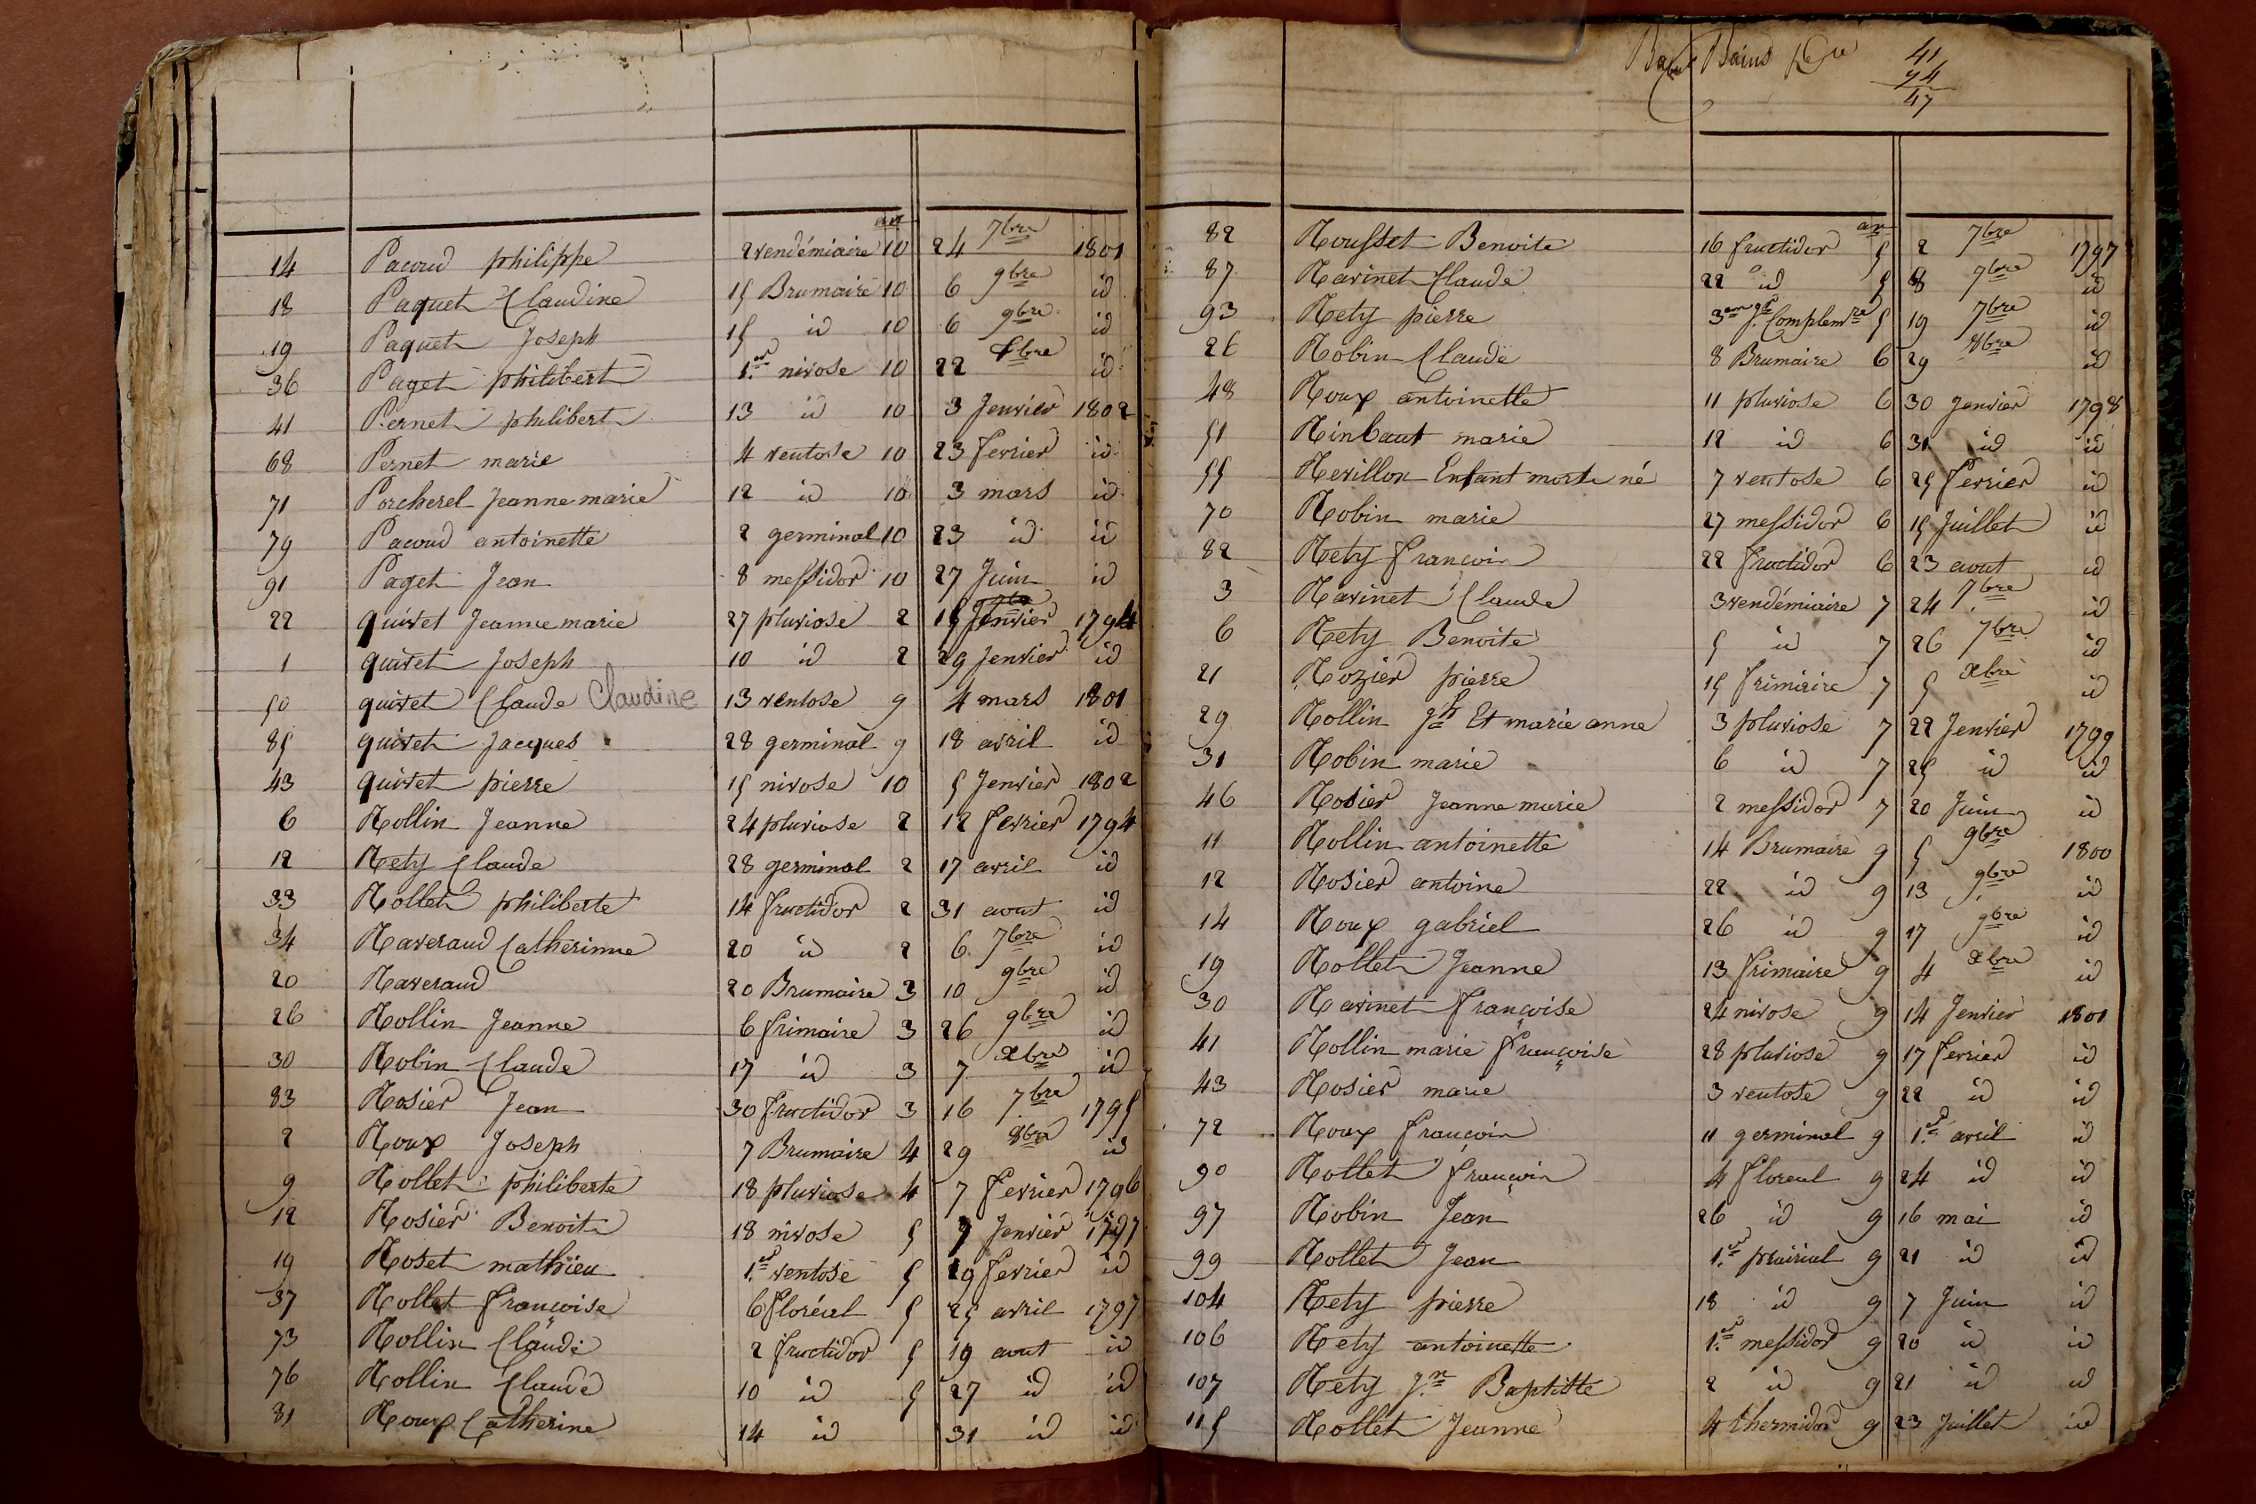 an
14 Pacoud philippe 2 vendémiaire 10 24 7bre 1801
18 Paquet Claudine 15 Brumaire 10 6 9bre id
19 Paquet Joseph 15 id 10 6 9bre id
36 Paget philibert 1.er nivose 10 22 xbre id
41 Pernet philibert 13 id 10 3 Jenvier 1802
68 Pernet marie 4 ventose 10 23 fevrier id
71 Porcherel Jeanne marie 12 id 10 3 mars id
79 Pacoud antoinette 2 germinal 10 23 id id
91 Paget Jean 8 messidor 10 27 Juin id
22 quivet Jeanne marie 27 pluviose 2 15 Jenvier 1794
1 quivet Joseph 10 id 2 29 Jenvier id
50 quivet Claude Claudine 13 ventose 9 4 mars 1801
85 quivet Jacques 28 germinal 9 18 avril id
43 quivet pierre 15 nivose 10 5 Jenvier 1802
6 Rollin Jeanne 24 pluviose 2 12 fevrier 1794
12 Rety Claude 28 germinal 2 17 avril id
33 Rollet philiberte 14 fructidor 2 31 aout id
34 Raveraud Catherinne 20 id 2 6 7bre id
20 Raveraud 20 Brumaire 3 10 9bre id
26 Rollin Jeanne 6 frimaire 3 26 9bre id
30 Robin Claude 17 id 3 7 xbre id
83 Rosier Jean 30 fructidor 3 16 7bre 1795
2 Roux Joseph 7 Brumaire 4 29 8bre id
9 Rollet philiberte 18 pluviose 4 7 fevrier 1796
12 Rosier Benoit 18 nivose 5 7 Jenvier 1797
19 Roset mathieu 1.er ventose 5 19 fevrier id
37 Rollet françoise 6 floréal 5 25 avril 1797
73 Rollin Claude 2 fructidor 5 19 aout id
76 Rollin Claude 10 id 5 27 id id
81 Roux Catherine 14 id 31 id id
Bains
41
47
an
82 Rousset Benoite 16 fructidor 5 2 7bre 1797
87 Ravinet Claude 22 id 5 8 7bre id
93 Rety pierre 3em Jr. Complemre 5 19 7bre id
26 Robin Claude 8 Brumaire 6 29 8bre id
48 Roux antoinette 11 pluviose 6 30 Jenvier 1798
51 Rinbaut marie 12 id 6 31 id id
55 Revillon Enfant morte né 7 ventose 6 25 fevrier id
70 Robin marie 27 messidor 6 15 Juillet id
82 Rety françoin 22 fructidor 6 23 aout id
3 Ravinet Claude 3 vendémiaire 7 24 7bre id
6 Rety Benoite 5 id 7 26 7bre id
21 Rozier pierre 15 frimaire 7 5 xbre id
29 Rollin Jh Et marie anne 3 pluviose 7 22 Jenvier 1799
31 Robin marie 6 id 7 25 id id
46 Rosier Jeanne marie 2 messidor 7 20 Juin id
11 Rollin antoinette 14 Brumaire 9 5 9bre 1800
12 Rosier antoine 22 id 9 13 9bre id
14 Roux gabriel 26 id 9 17 9bre id
19 Rollet Jeanne 13 frimaire 9 4 xbre id
30 Ravinet françoise 24 nivose 9 14 Jenvier 1801
41 Rollin marie françoise 28 pluviose 9 17 fevrier id
43 Rosier marie 3 ventose 9 22 id id
72 Roux françoin 11 germinal 9 1.er avril id
90 Rollet françoin 4 floreal 9 24 id id
97 Robin Jean 26 id 9 16 mai id
99 Rollet Jean 1.er prairial 9 21 id id
104 Rety pierre 18 id 9 7 Juin id
106 Rety antoinette 1.er messidor 9 20 id id
107 Rety Jn Baptiste 2 id 9 21 id id
115 Rollet Jeanne 4 thermidor 9 23 Juillet id